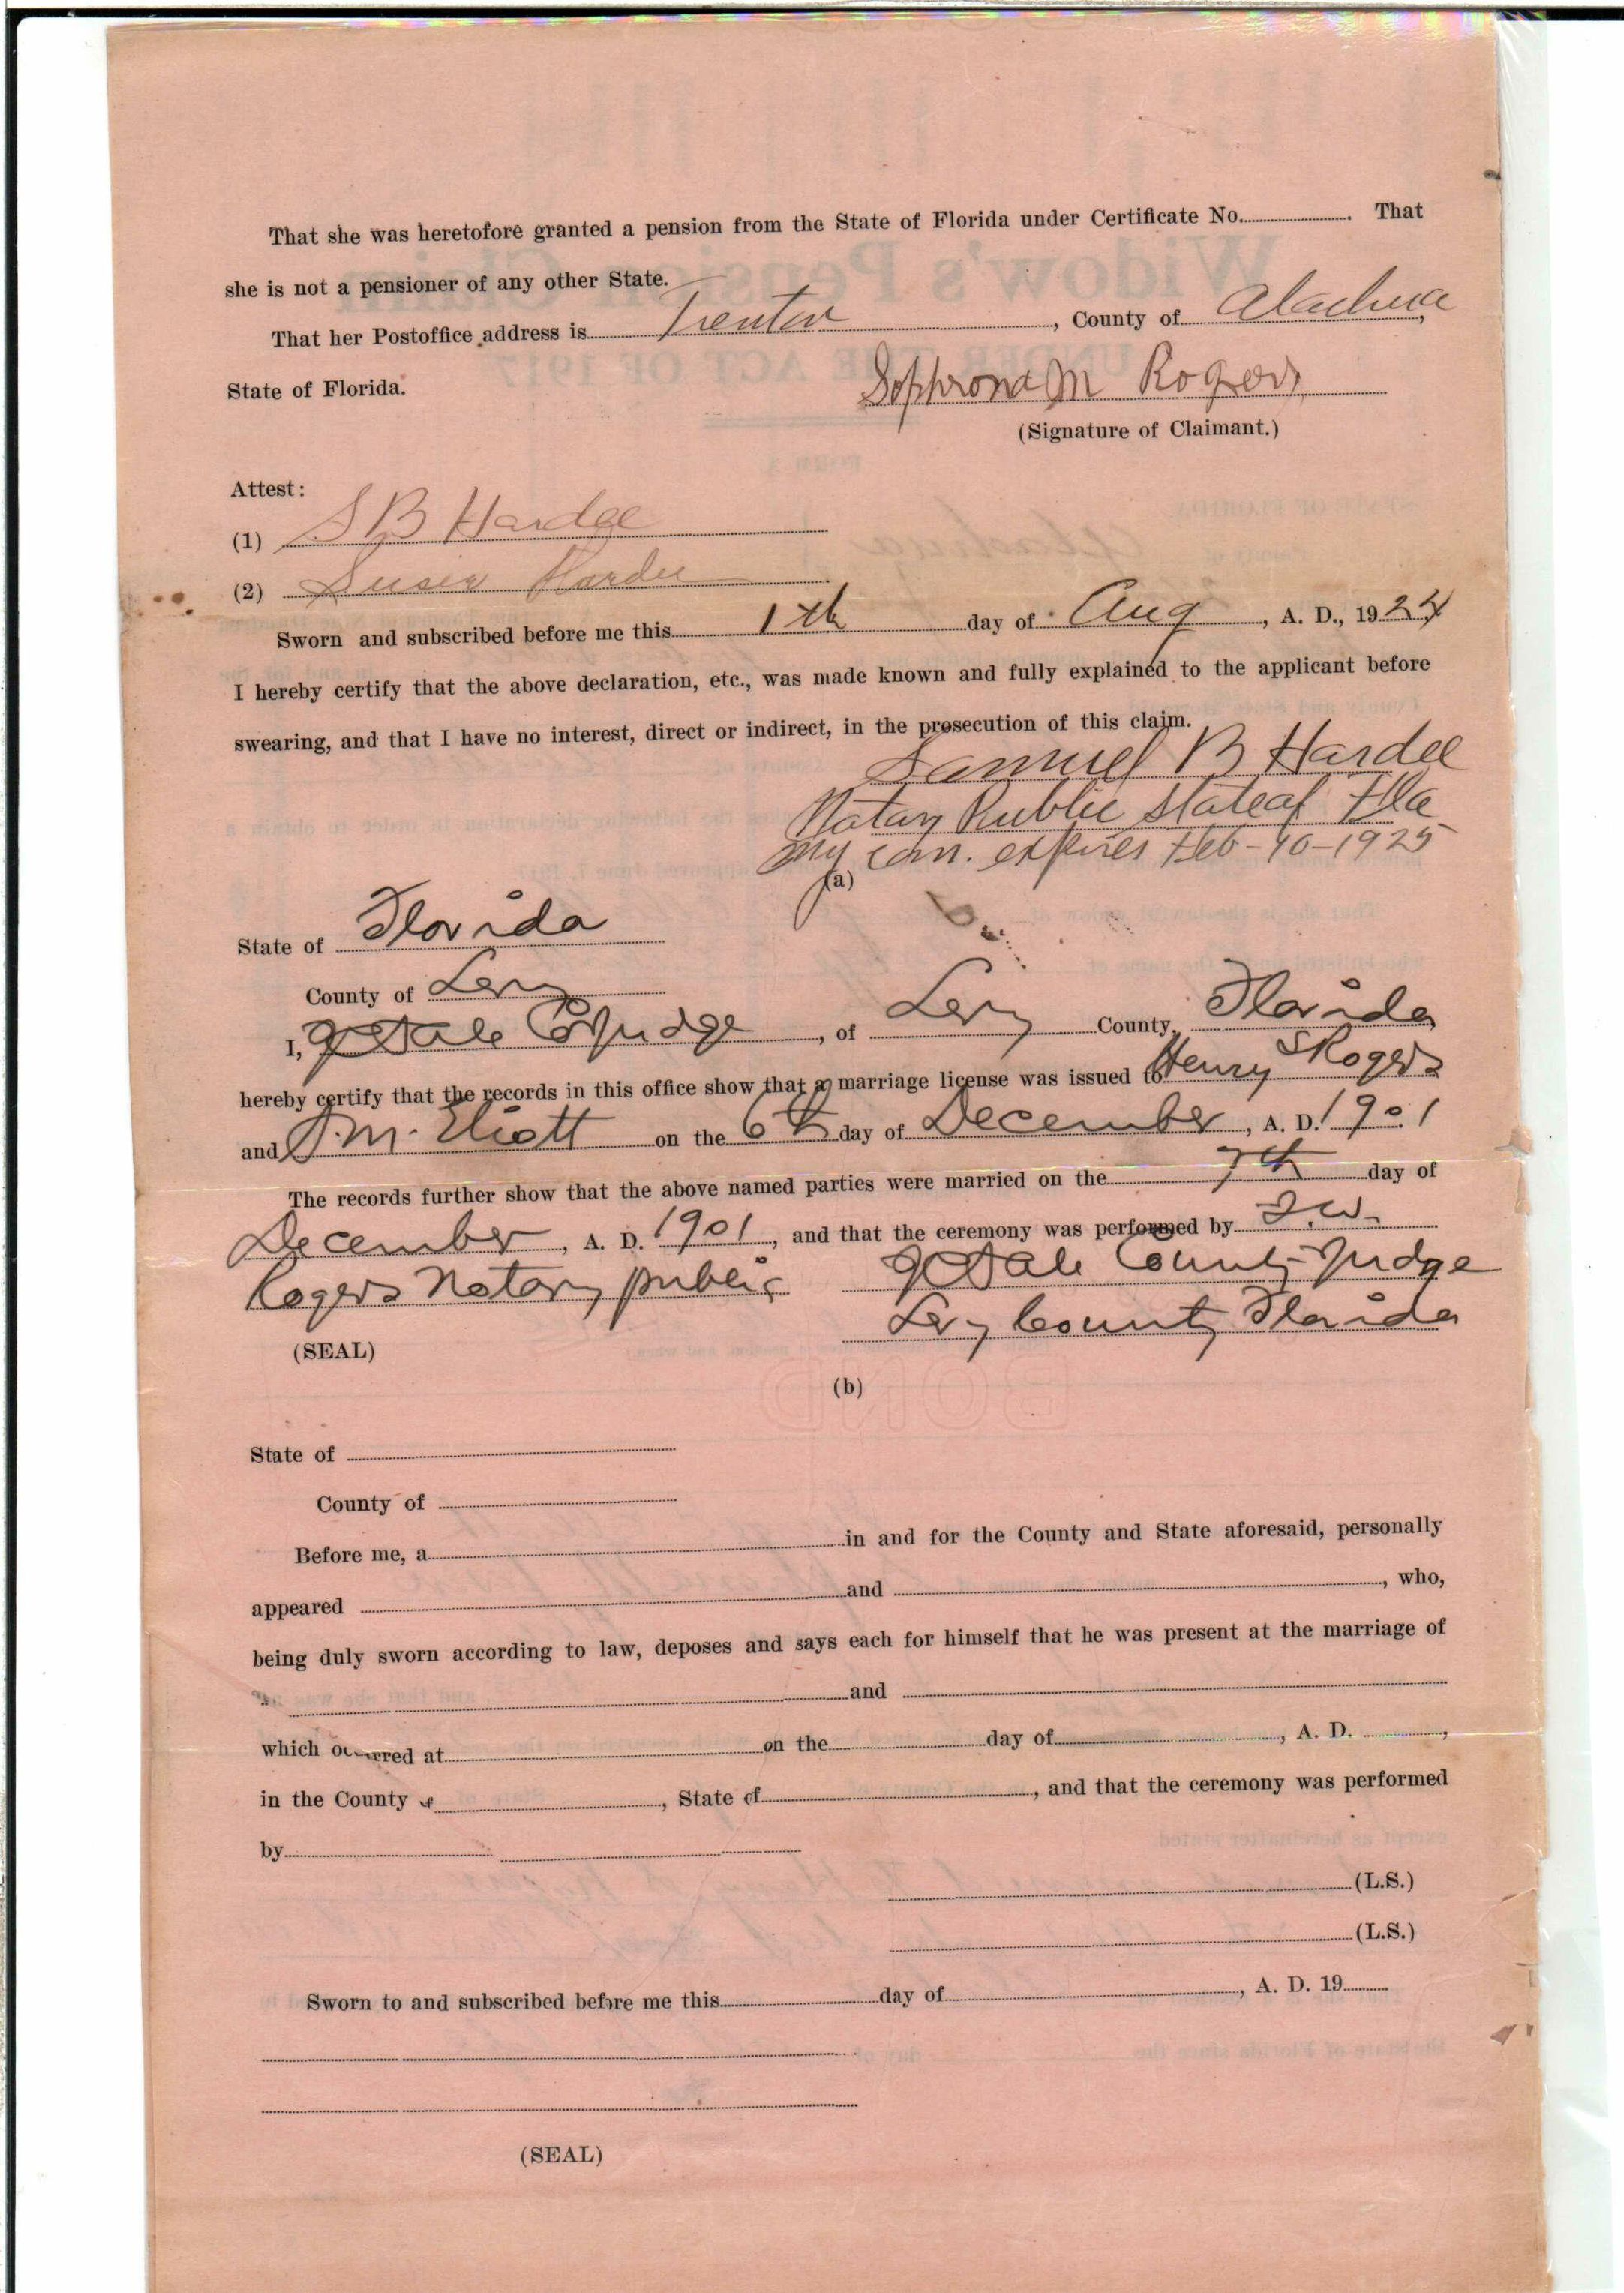 That she was heretofore granted a pension from the State of Florida under Certificate No. . That
she is not a pensioner of any other State.
That her Postoffice address is Trenton , County of Alachua
State of Florida.
Sophrona M Rogers
(Signature of Claimant.)
Attest:
(1) S B Hardee
(2) Hardee
Sworn and subscribed before me this 1th day of Aug , A. D., 1924
I hereby certify that the above declaration, etc., was made known and fully explained to the applicant before
swearing, and that I have no interest, direct or indirect, in the prosecution of this claim.
Samuel B Hardee
Notary Public State of Fla
my com. expires Feb - -1925
(a)
State of Florida
County of Levy
I, Co Judge , of Levy County, Florida
hereby certify that the records in this office show that a marriage license was issued to Henry S Rogers
and S. M. Eliott on the 6th day of December , A. D. 1901
The records further show that the above named parties were married on the 7th day of
December , A. D. 1901 , and that the ceremony was performed by
Rogers Notary public County Judge
Levy County Florida
(SEAL)
(b)
State of
County of
Before me, a in and for the County and State aforesaid, personally
appeared and , who,
being duly sworn according to law, deposes and says each for himself that he was present at the marriage of
and
which occurred at on the day of , A. D. ,
in the County of , State of , and that the ceremony was performed
by
(L.S.)
(L.S.)
Sworn to and subscribed before me this day of , A. D. 19
(SEAL)